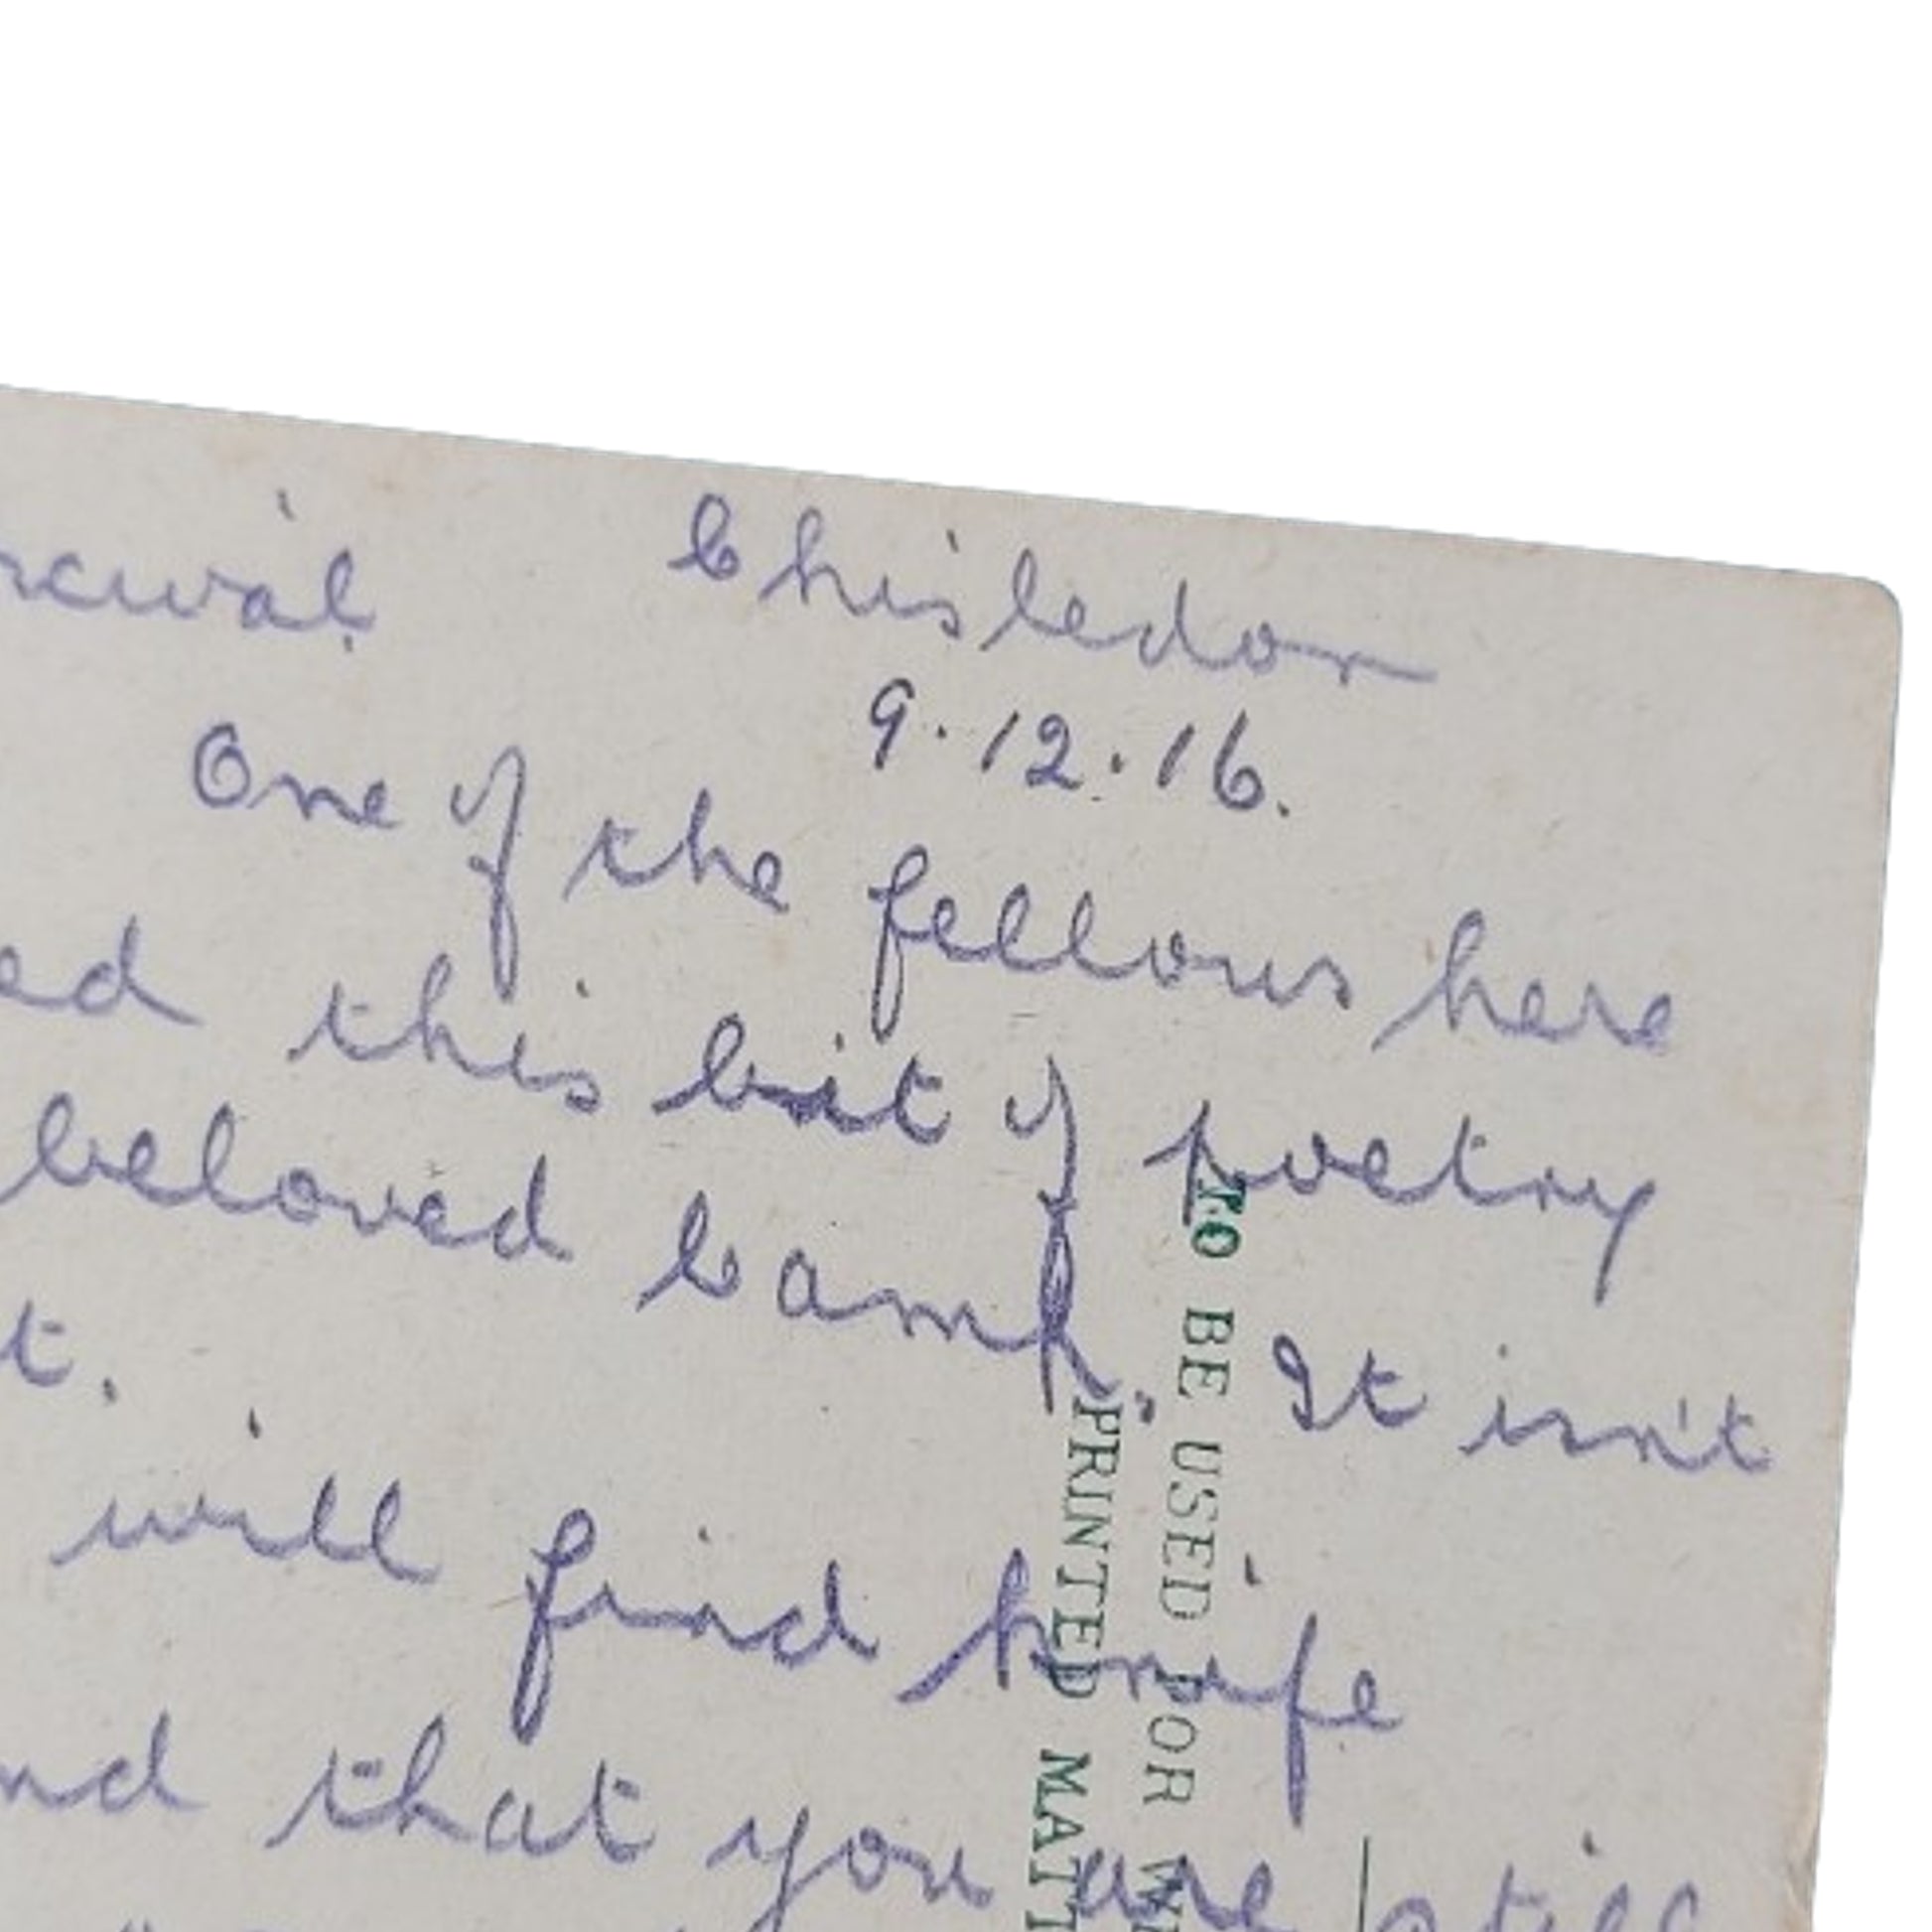 Chisledon
9.12.16.
One of the fellows here
this bit of poetry
beloved Camp. It isn't
will find knife
that you are still
TO BE USED FOR
PRINTED